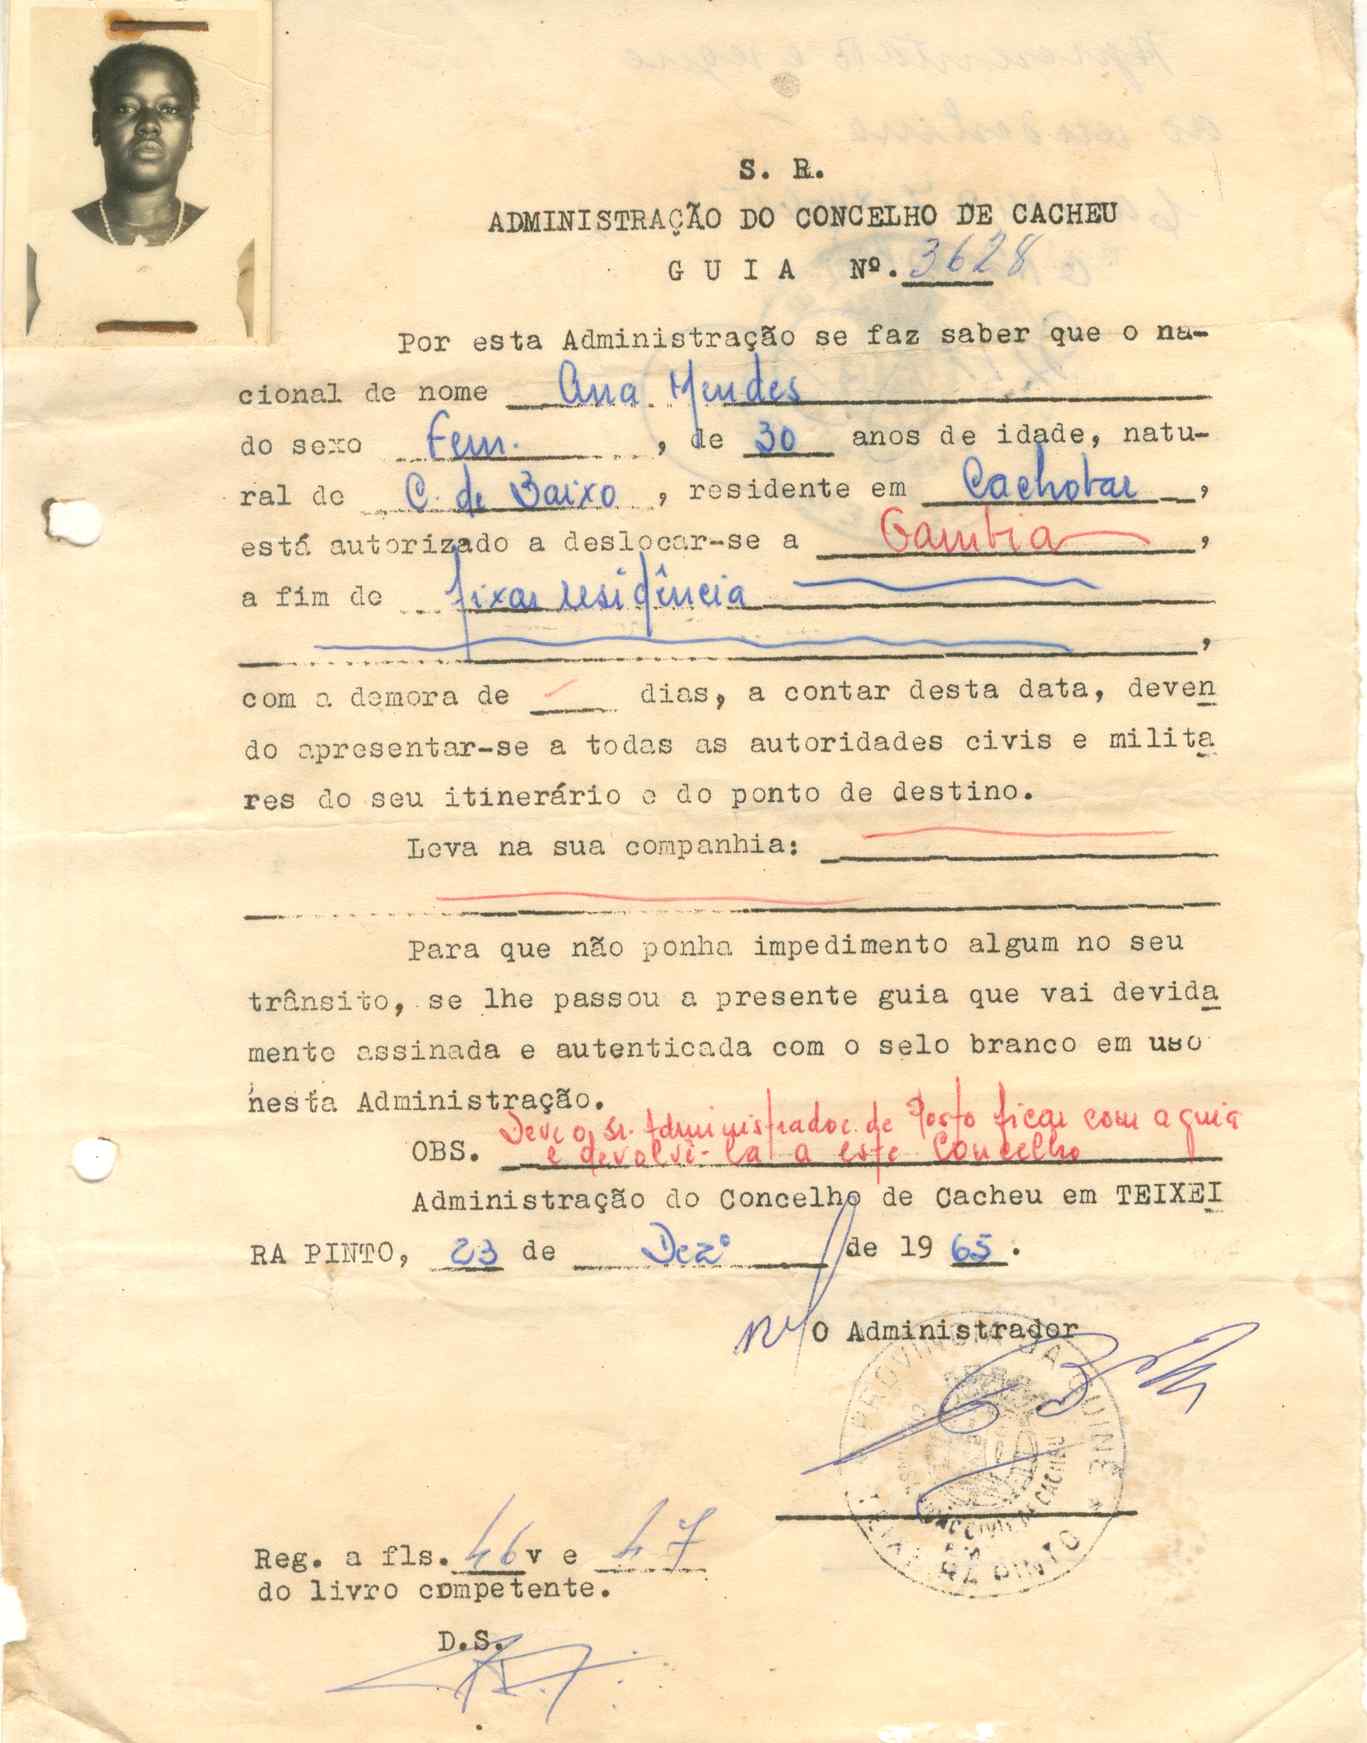 S. R.
ADMINISTRAÇÃO DO CONCELHO DE CACHEU
G U I A Nº. 3628
Por esta Administração se faz saber que o na-
cional de nome Ana Mendes
do sexo Fem. , de 30 anos de idade, natu-
ral de C. de Baixo , residente em Cachobar ,
está autorizado a deslocar-se a Gambia ,
a fim de fixar residência
,
com a demora de dias, a contar desta data, deven
do apresentar-se a todas as autoridades civis e milita
res do seu itinerário e do ponto de destino.
Leva na sua companhia:
Para que não ponha impedimento algum no seu
trânsito, se lhe passou a presente guia que vai devida
mente assinada e autenticada com o selo branco em uso
nesta Administração.
Deve o Sr. Administrador de Posto ficar com a guia
OBS. e devolvê-la a este Concelho
Administração do Concelho de Cacheu em TEIXEI
RA PINTO, 23 de Dezº de 19 65.
O Administrador
PROVINCIA DA GUINÉ
TEIXEIRA PINTO
Reg. a fls. 46 v e 47
do livro competente.
D.S.